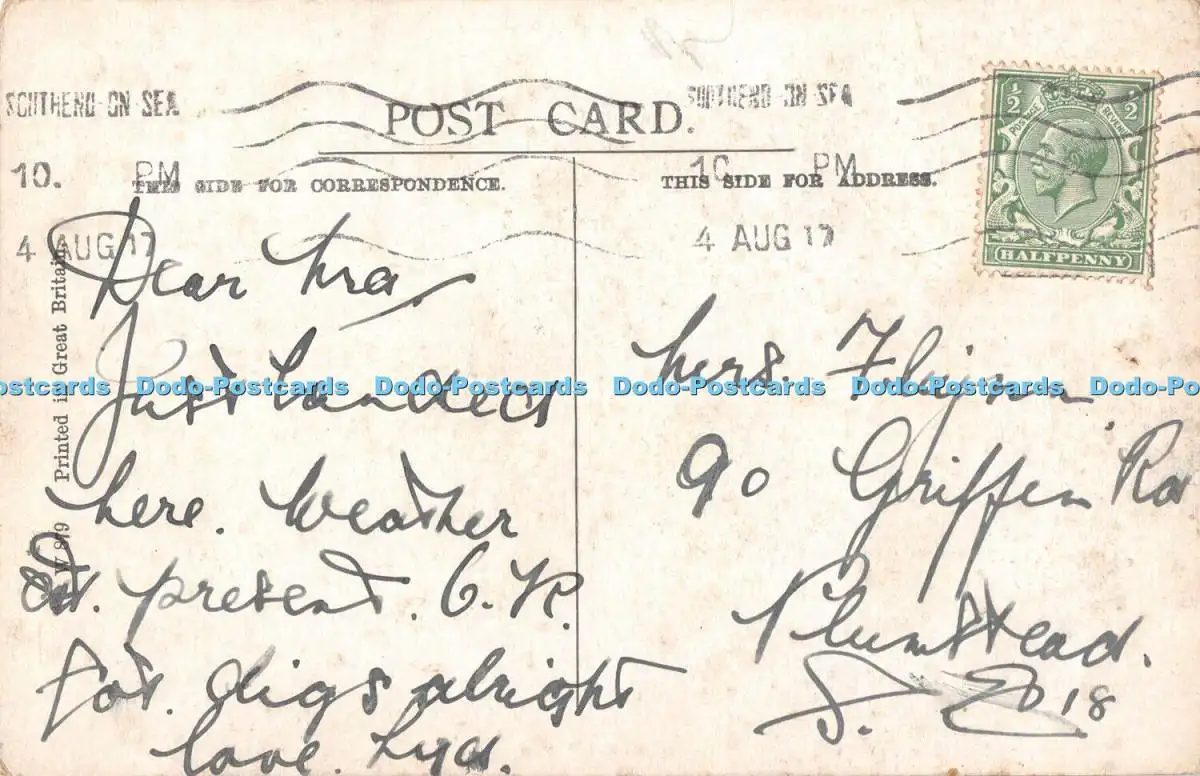 SOUTHEND-ON-SEA
10. PM
4 AUG 17
SOUTHEND-ON-SEA
10 PM
4 AUG 17
POST CARD.
THIS SIDE FOR CORRESPONDENCE.
THIS SIDE FOR ADDRESS.
½ ½
POSTAGE REVENUE
HALFPENNY
Printed in Great Britain
Dear
Just landed
here. Weather
at. present. O.K.
Got. digs alright
love.
Mrs. Flynn
90 Griffin Rd
Plumstead.
S. E. 18
Dodo-Postcards Dodo-Postcards Dodo-Postcards Dodo-Postcards Dodo-Postcards